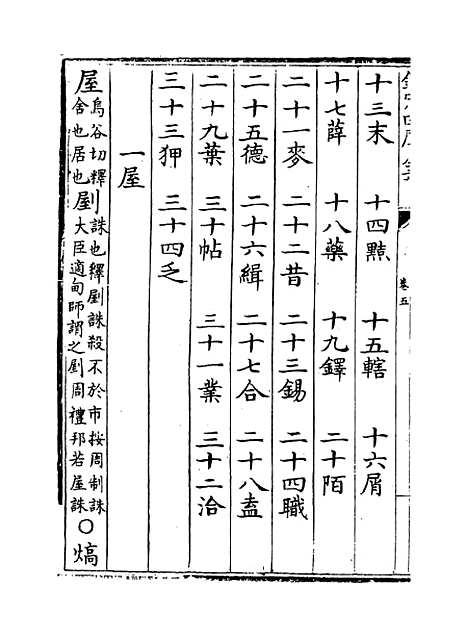 卷五
十三末 十四黠 十五轄 十六屑
十七薛 十八藥 十九鐸 二十陌
二十一麥 二十二昔 二十三錫 二十四職
二十五德 二十六緝 二十七合 二十八盍
二十九葉 三十帖 三十一業 三十二洽
三十三狎 三十四乏
一屋
屋烏谷切釋舍也居也剭誅也釋剭誅殺不於市按周制誅大臣適甸師謂之剭周禮邦若屋誅○熇